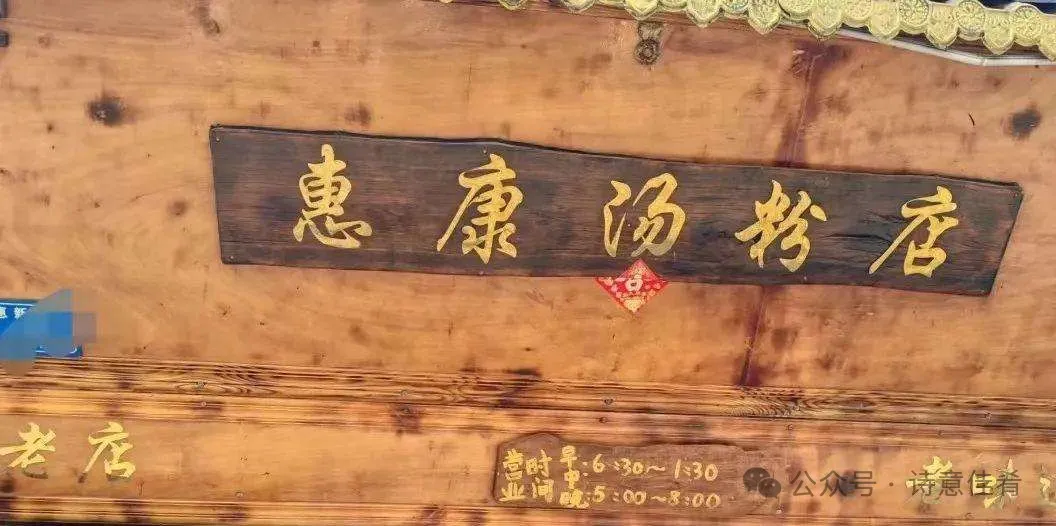 惠康汤粉店
惠新
老店
营业时间
早中:6:30~1:30
晚:5:00~8:00
公众号·诗意佳肴